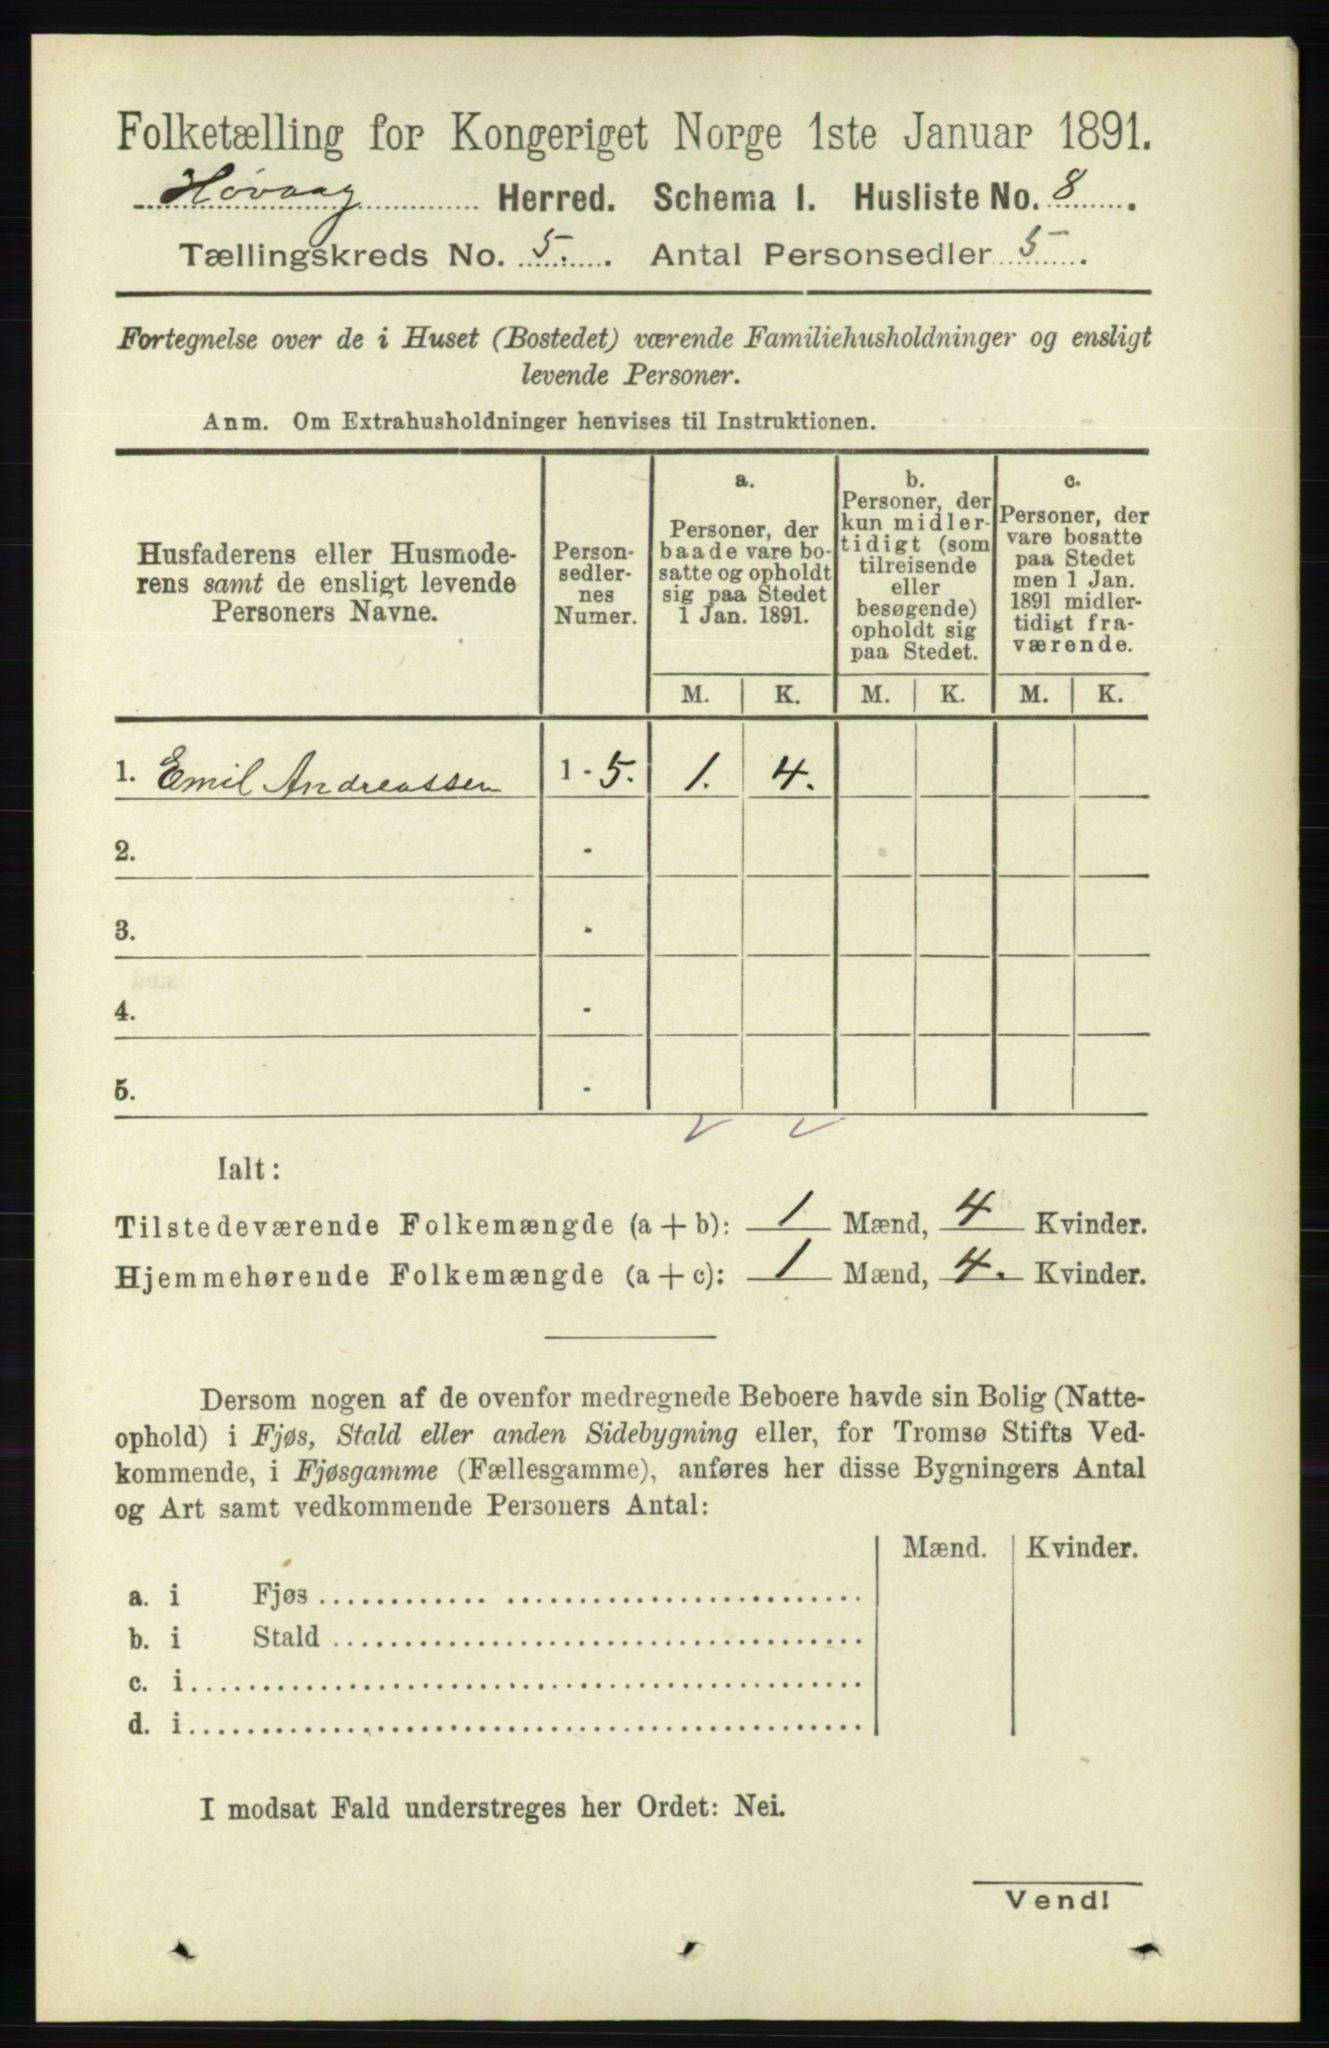 Folketælling for Kongeriget Norge 1ste Januar 1891.
Høvaag Herred. Schema 1. Husliste No. 8.
Tællingskreds No. 5. Antal Personsedler 5.
Fortegnelse over de i Huset (Bostedet) værende Familiehusholdninger og ensligt
levende Personer.
Anm. Om Extrahusholdninger henvises til Instruktionen.
Husfaderens eller Husmode-
rens samt de ensligt levende
Personers Navne.
Person-
sedler-
nes
Numer.
a.
Personer, der
baade vare bo-
satte og opholdt
sig paa Stedet
1 Jan. 1891.
b.
Personer, der
kun midler-
tidigt (som
tilreisende
eller
besøgende)
opholdt sig
paa Stedet.
c.
Personer, der
vare bosatte
paa Stedet
men 1 Jan.
1891 midler-
tidigt fra-
værende.
M. K. M. K. M. K.
1. Emil Andreassen 1 - 5. 1. 4.
2. -
3. -
4. -
5. -
Ialt:
Tilstedeværende Folkemængde (a + b): 1 Mænd, 4 Kvinder.
Hjemmehørende Folkemængde (a + c): 1 Mænd, 4. Kvinder.
Dersom nogen af de ovenfor medregnede Beboere havde sin Bolig (Natte-
ophold) i Fjøs, Stald eller anden Sidebygning eller, for Tromsø Stifts Ved-
kommende, i Fjøsgamme (Fællesgamme), anføres her disse Bygningers Antal
og Art samt vedkommende Personers Antal:
Mænd. Kvinder.
a. i Fjøs
b. i Stald
c. i
d. i
I modsat Fald understreges her Ordet: Nei.
Vend!